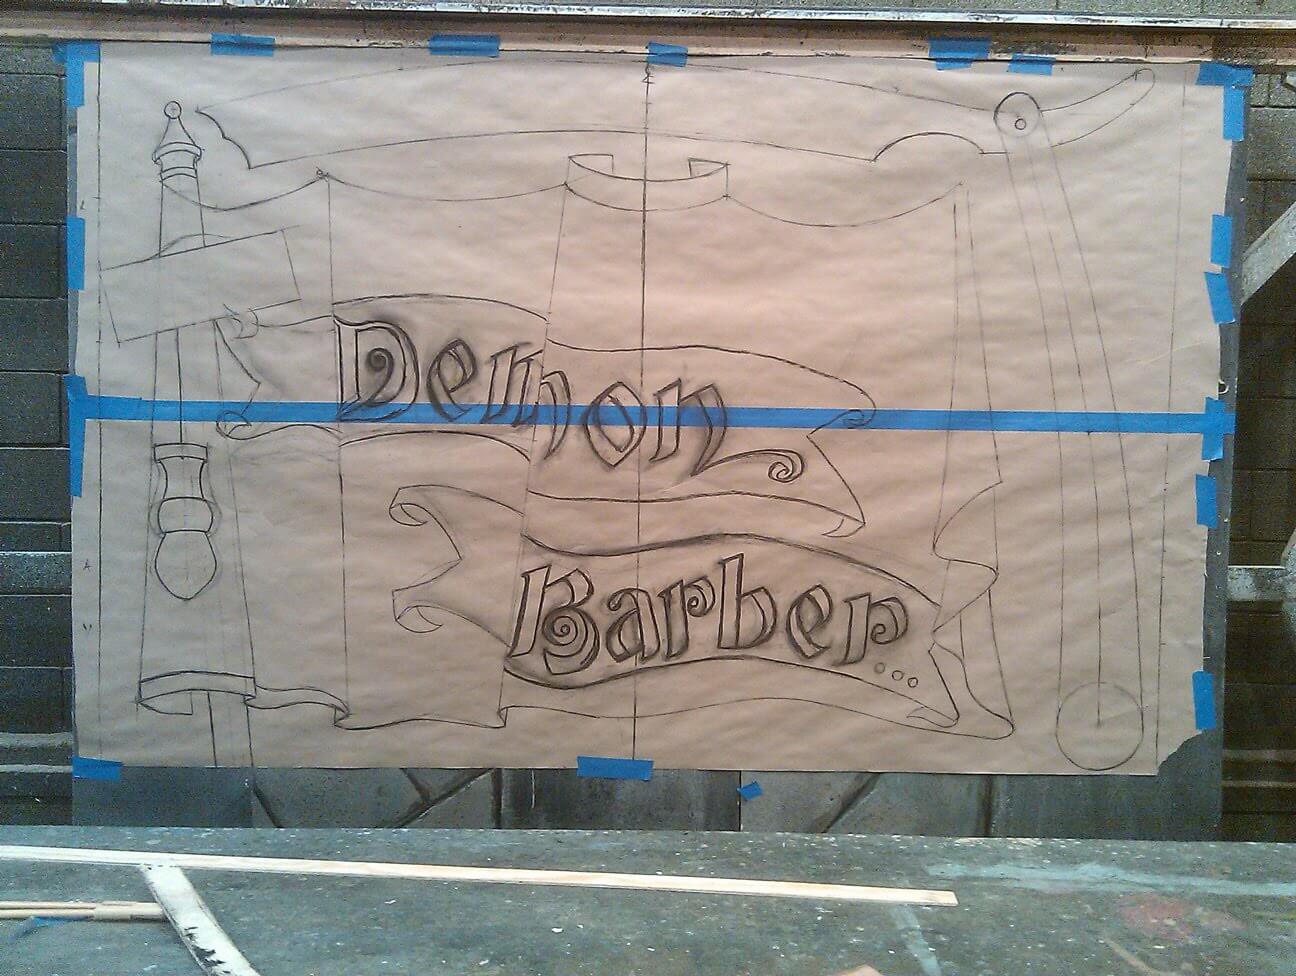 Demon
Barber...